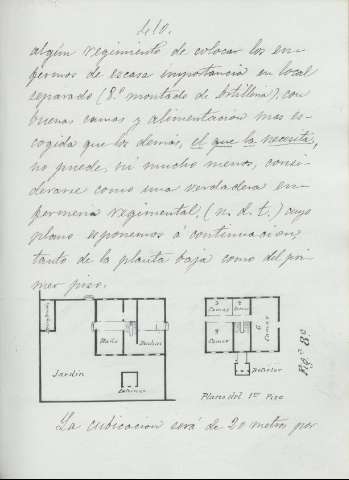 de 10.
algún regimiento de colocar los en-
fermos de escasa importancia en local
separado (8.º montado de Artilleria), con
buenas camas y alimentacion mas es-
cogida que los demás, el que la necesita,
no puede, ni mucho menos, consi-
derarse como una verdadera en-
fermeria regimental, (n. d. t.) cuyo
plano esponemos á continuacion,
tanto de la planta baja como del pri-
mer piso.
Baño
Jardin
Letrinas
3 Camas
4 Camas
6 Camas
Plano del 1er Piso
Fig.ª 8ª
La cubicacion será de 20 metros por